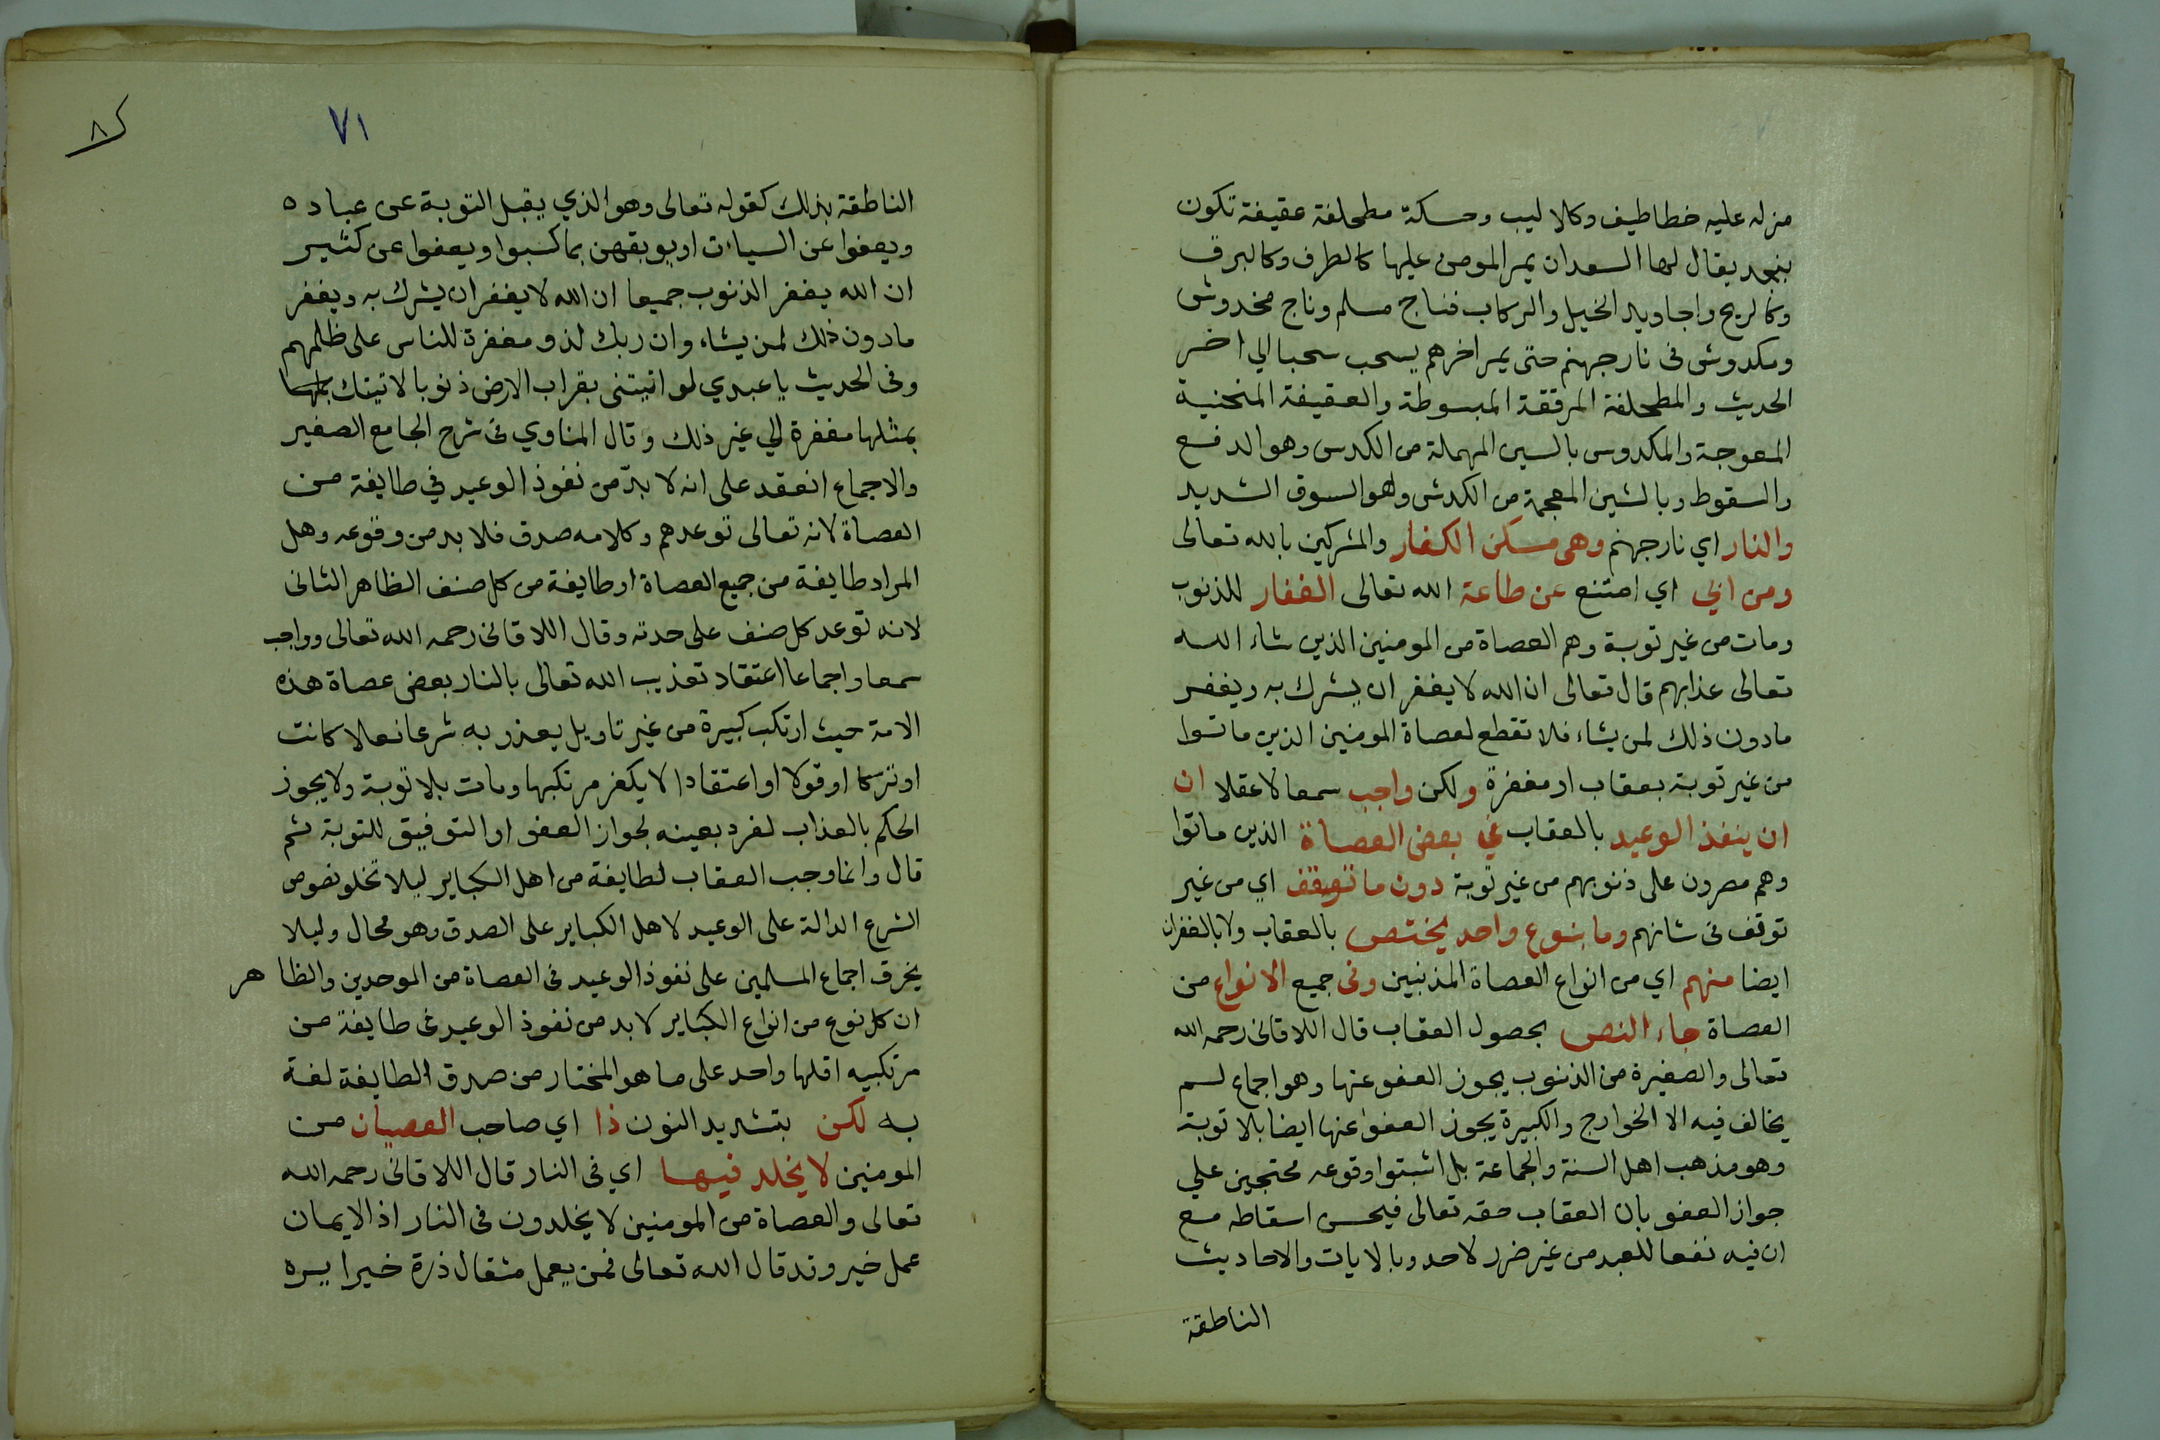 مزله عليه خطاطيف وكلاليب وحسكة مطحلفة عقيفة تكون
بنجد يقال لها السعدان يمر المومن عليها كالطرف وكالبرق
وكالريح واجاويد الخيل والركاب فناج مسلم وناج مخدوش
ومكدوش في نار جهنم حتى يمر اخرهم يسحب سحبا الي اخر
الحديث والمطحلفة المرققة المبسوطة والعقيفة المنحنية
المعوجة والمكدوس بالسين المهملة من الكدس وهو الدفع
والسقوط وبالشين المعجمة من الكدش وهو السوق الشديد
والنار اي نار جهنم وهي مسكن الكفار والمشركين بالله تعالى
ومن ابي اي امتنع عن طاعة الله تعالى الغفار للذنوب
ومات من غير توبة وهم العصاة من المومنين الذين شاء الله
تعالى عذابهم قال تعالى ان الله لا يغفر ان يشرك به ويغفر
مادون ذلك لمن يشاء فلا تقطع لعصاة المومنين الذين ماتوا
من غير توبة بعقاب او مغفرة ولكن واجب سمعا لا عقلا ان
ان ينفذ الوعيد بالعقاب في بعض العصاة الذين ماتوا
وهم مصرون على ذنوبهم من غير توبة دون ما توقف اي من غير
توقف في شانهم وما بنوع واحد يختص بالعقاب ولا بالغفران
ايضا منهم اي من انواع العصاة المذنبين وفي جميع الانواع من
العصاة جاء النص بحصول العقاب قال اللاقاني رحمه الله
تعالى والصغيرة من الذنوب يجوز العفو عنها وهو اجماع لم
يخالف فيه الا الخوارج والكبيرة يجوز العفو عنها ايضا بلا توبة
وهو مذهب اهل السنة والجماعة بل اثبتوا وقوعه محتجين علي
جواز العفو بان العقاب حقه تعالى فيحسن اسقاطه مع
ان فيه نفعا للعبد من غير ضرر لاحد وبالايات والاحاديث
الناطقة
٧١
٨
الناطقة بذلك كقوله تعالى وهو الذي يقبل التوبة عن عباده
ويعفوا عن السيات او يوبقهن بما كسبوا ويعفوا عن كثير
ان الله يغفر الذنوب جميعا ان الله لا يغفر ان يشرك به ويغفر
مادون ذلك لمن يشاء وان ربك لذو مغفرة للناس على ظلمهم
وفي الحديث يا عبدي لو اتيتني بقراب الارض ذنوبا لاتيتك
بمثلها مغفرة الي غير ذلك وقال المناوي في شرح الجامع الصغير
والاجماع انعقد على انه لا بدّ من نفوذ الوعيد في طايفة من
العصاة لانه تعالى توعدهم وكلامه صدق فلا بد من وقوعه وهل
المراد طايفة من جميع العصاة او طايفة من كل صنف الظاهر الثاني
لانه توعد كل صنف على حدته وقال اللاقاني رحمه الله تعالى وواجب
سمعا واجماعا اعتقاد تعذيب الله تعالى بالنار بعض عصاة هذه
الامة حيث ارتكب كبيرة من غير تاويل يعذر به شرعا فعلا كانت
او تركا او قولا او اعتقادا لا يكفر مرتكبها ومات بلا توبة ولا يجوز
الحكم بالعذاب لفرد بعينه لجواز العفو او التوفيق للتوبة ثم
قال وانما وجب العقاب لطايفة من اهل الكباير ليلا تخلو نصوص
الشرع الدالة على الوعيد لاهل الكباير على الصدق وهو محال وليلا
يخرق اجماع المسلمين على نفوذ الوعيد في العصاة من الموحدين والظاهر
ان كل نوع من انواع الكباير لا بد من نفوذ الوعيد في طايفة من
مرتكبيه اقلها واحد على ما هو المختار من صدق الطايفة لغة
به لكن بتشديد النون ذا اي صاحب العصيان من
المومنين لا يخلد فيها اي في النار قال اللاقاني رحمه الله
تعالى والعصاة من المومنين لا يخلدون في النار اذ الايمان
عمل خير وقد قال الله تعالى فمن يعمل مثقال ذرة خيرا يره